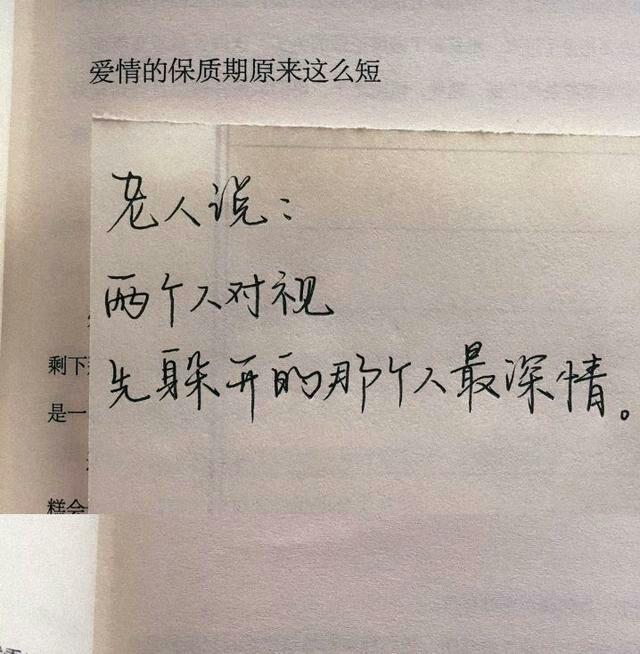 爱情的保质期原来这么短
老人说：
两个人对视
先躲开的那个人最深情。
剩下
是一
糕会